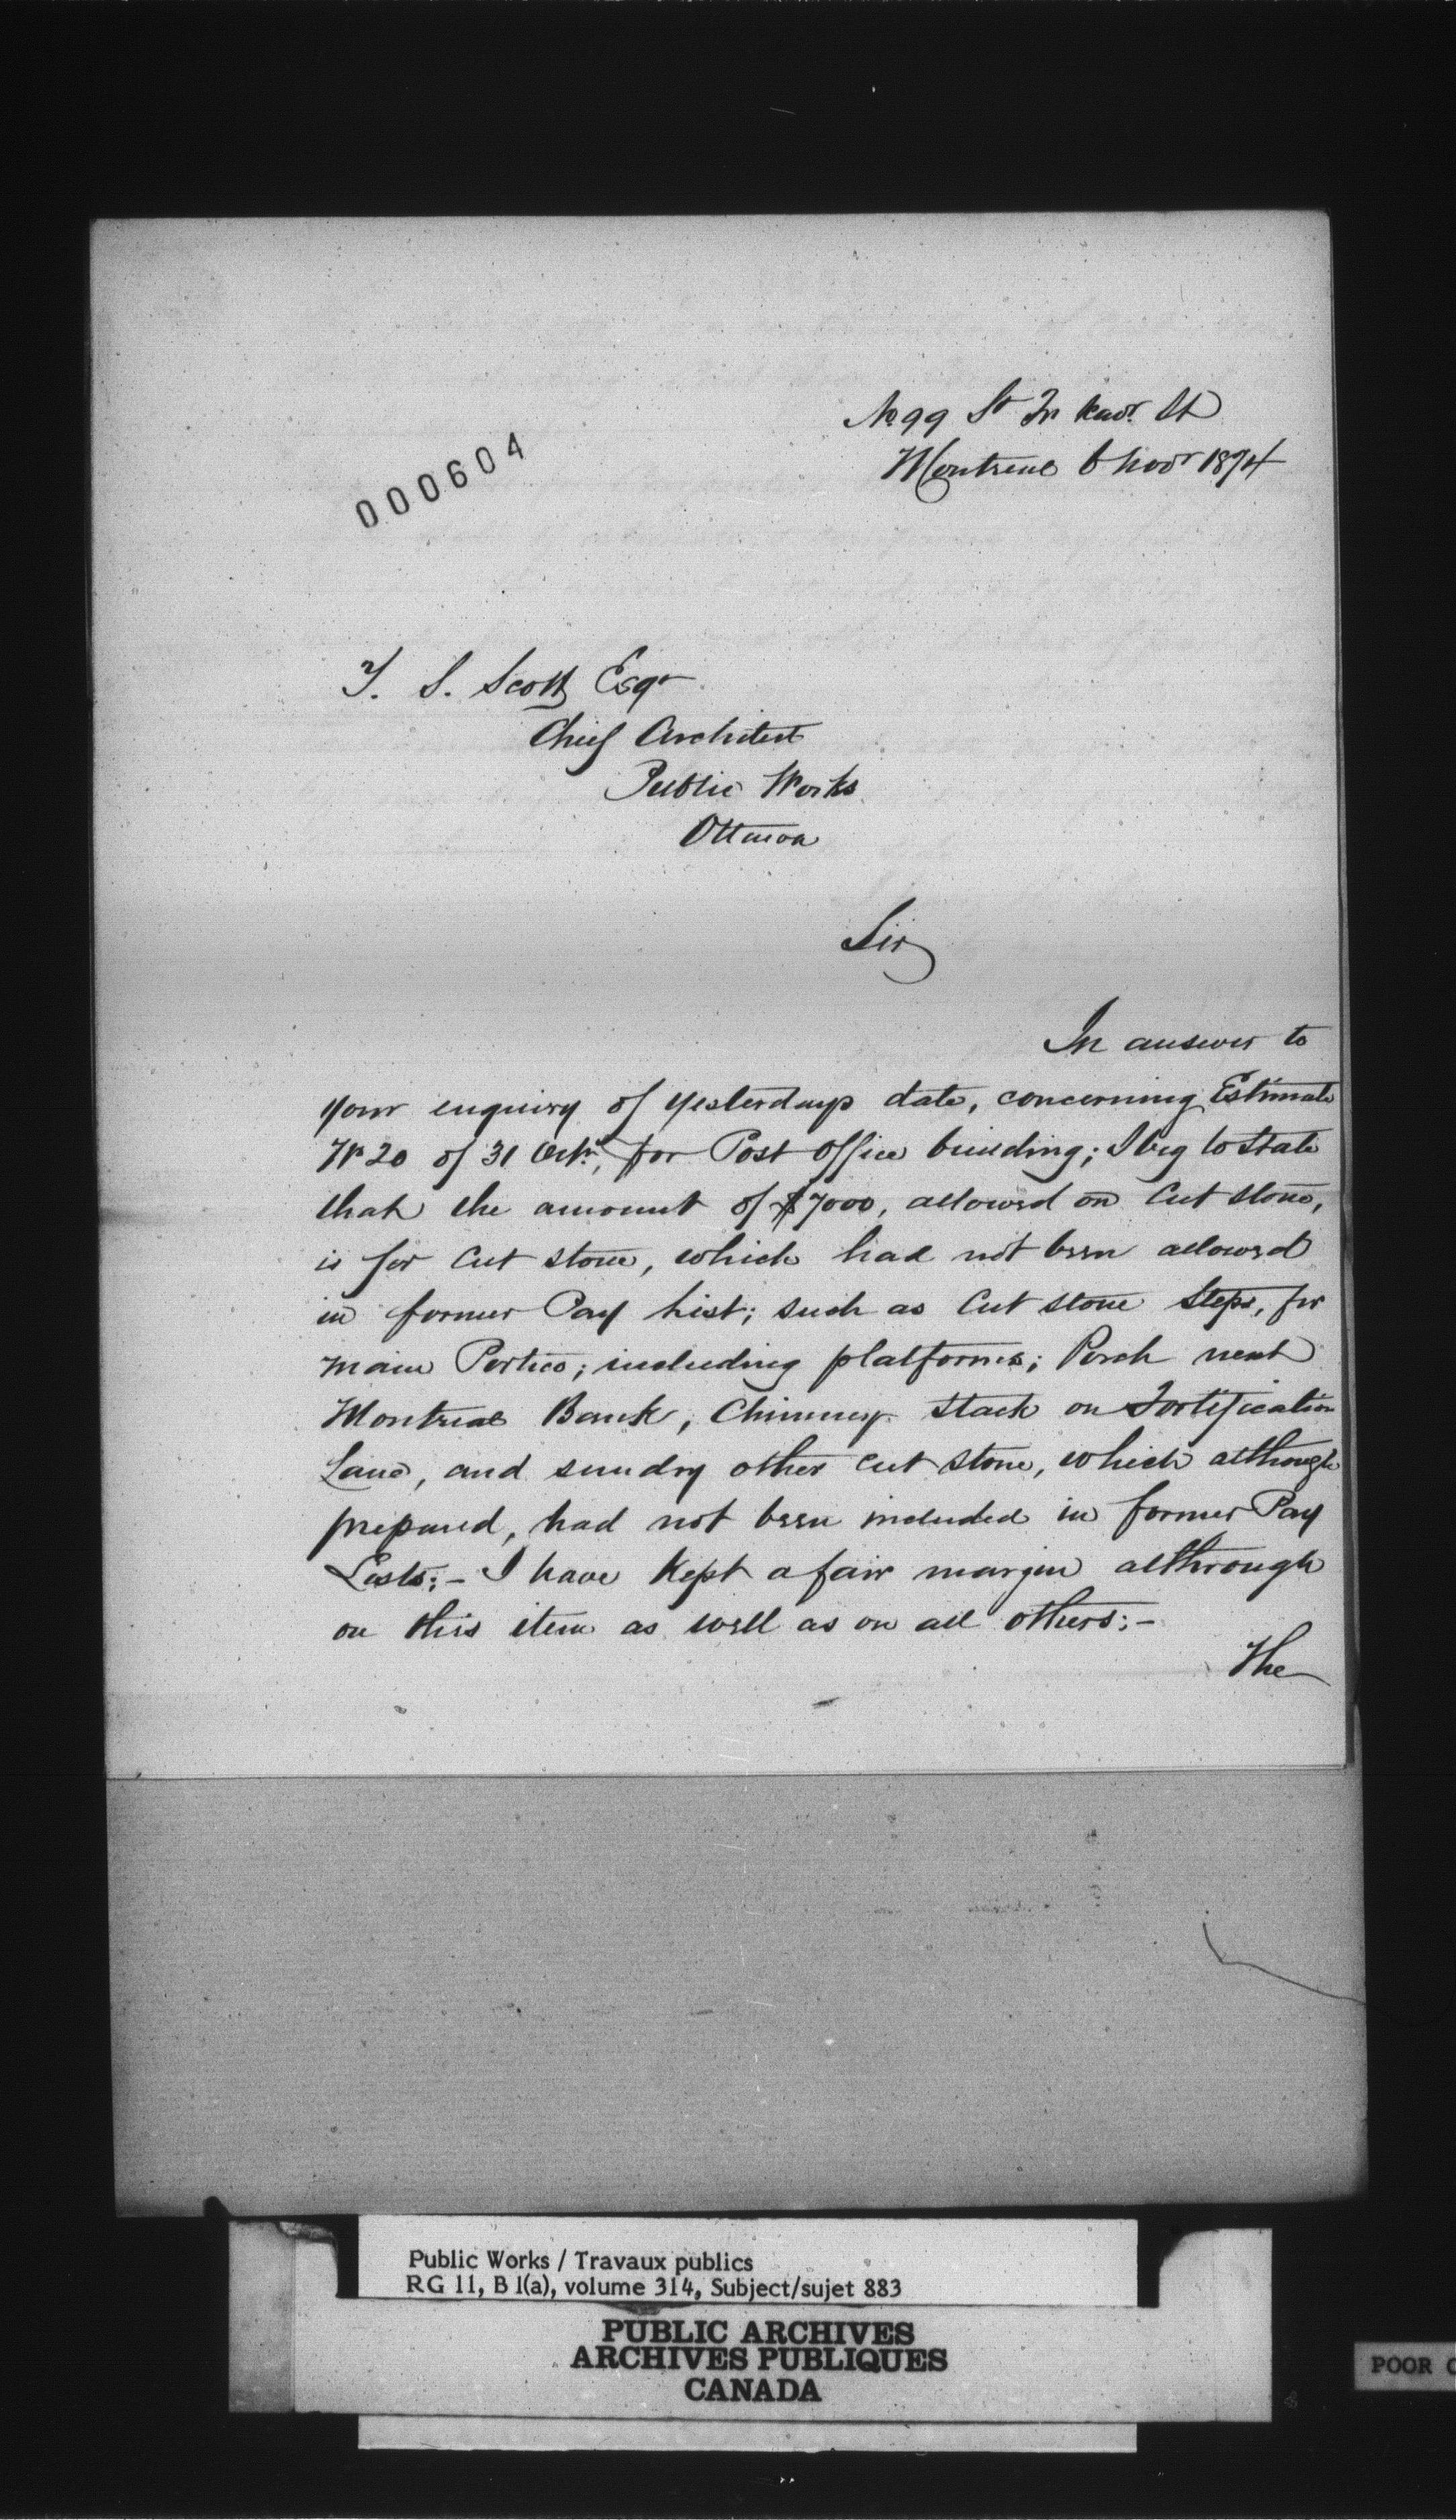 No 99 St Fr Xavr. St
Montreal 6 Novr 1874
000604
T. S. Scott Esqr
Chief Architect
Public Works
Ottawa
Sir
In answer to
your enquiry of yesterdays date, concerning Estimate
No 20 of 31 Octr, for Post Office building; I beg to State
that the amount of $7000, allowed on Cut stone,
is for Cut stone, which had not been allowed
in former Pay List; such as Cut stone Steps, for
Main Portico; including platforms; Porch next
Montreal Bank; Chimney Stack on Fortification
Lane, and sundry other Cut Stone, which although
prepared, had not been included in former Pay
Lists:- I have Kept a fair margin allthrough
on this item as well as on all others:-
The
Public Works / Travaux publics
RG 11, B 1(a), volume 314, Subject/sujet 883
PUBLIC ARCHIVES
ARCHIVES PUBLIQUES
CANADA
POOR